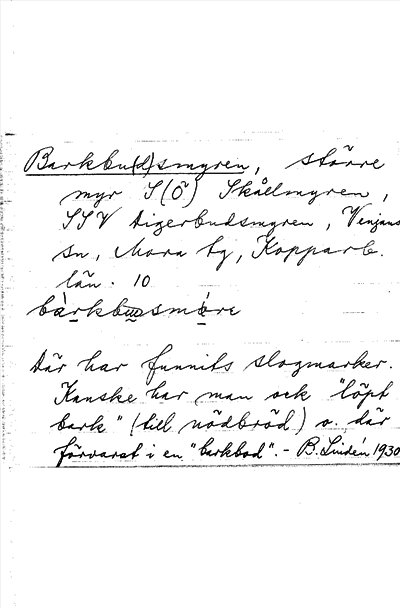 Barkbu(d)smyren, större
myr S(Ö) Skållmyren,
SSV Digerbudsmyren, Venjans
sn, Mora tg, Kopparb.
län. 10
bàrkbusmýre
Där har funnits slogmarker.
Kanske har man ock "löpt
bark" (till nödbröd) o. där
förvarat i en "barkbod". - B. Lindén 1930